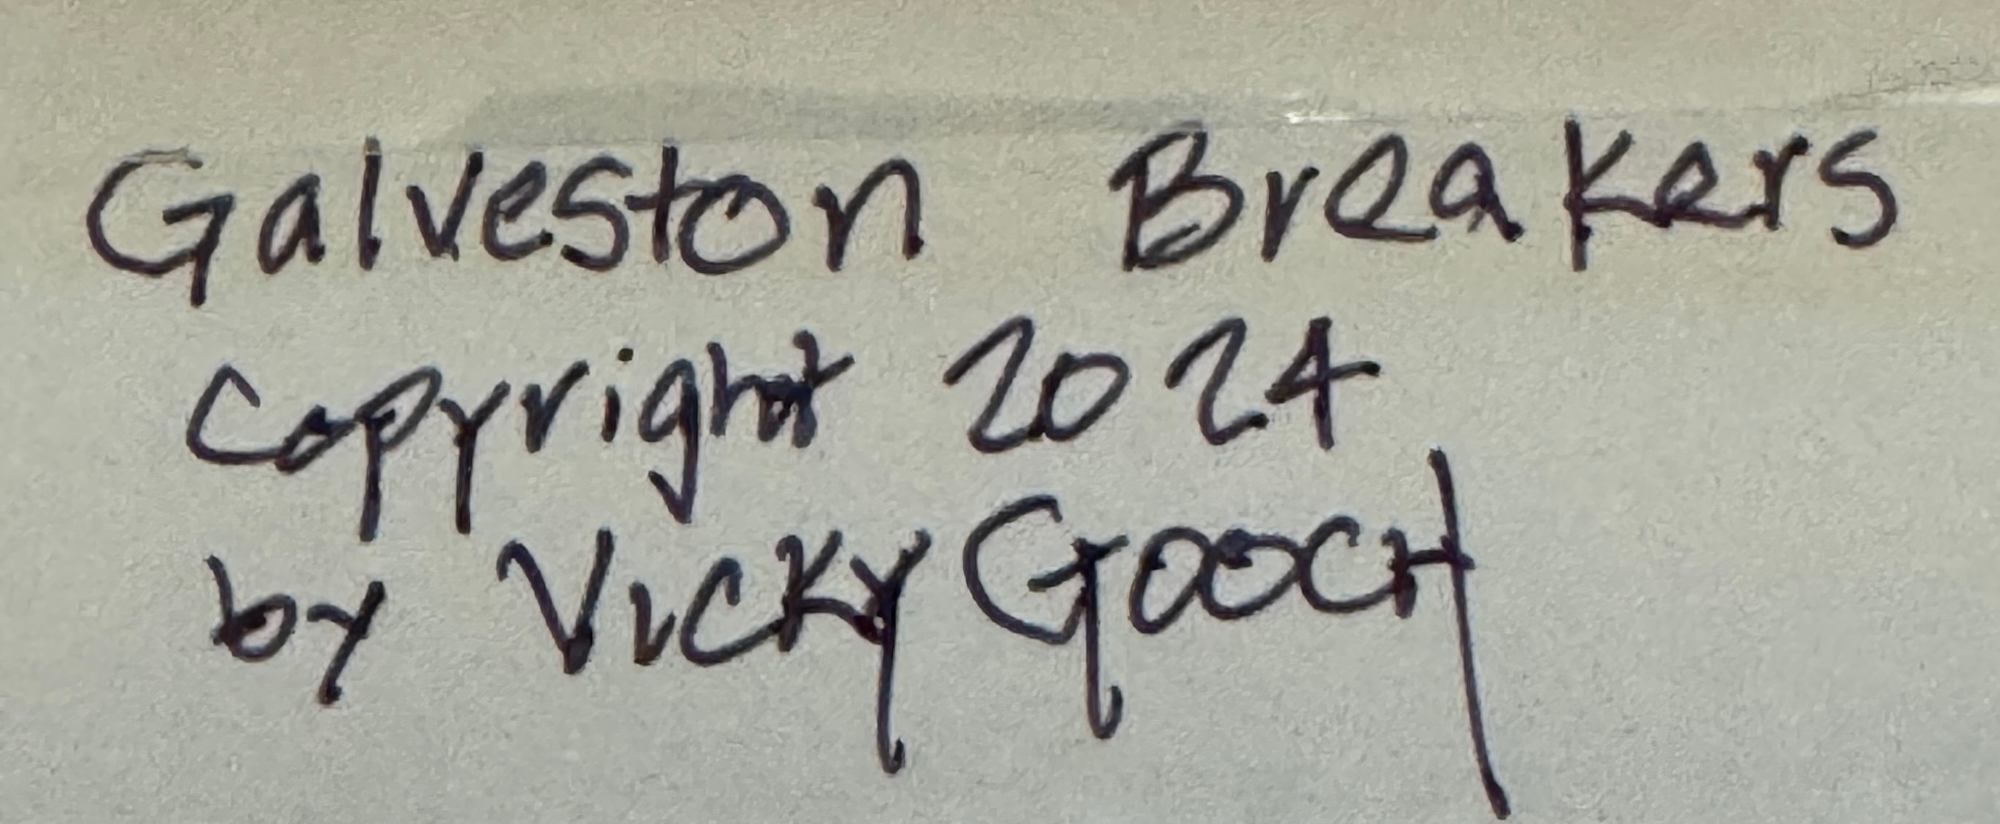 Galveston Breakers
Copyright 2024
by VICKY GOOCH